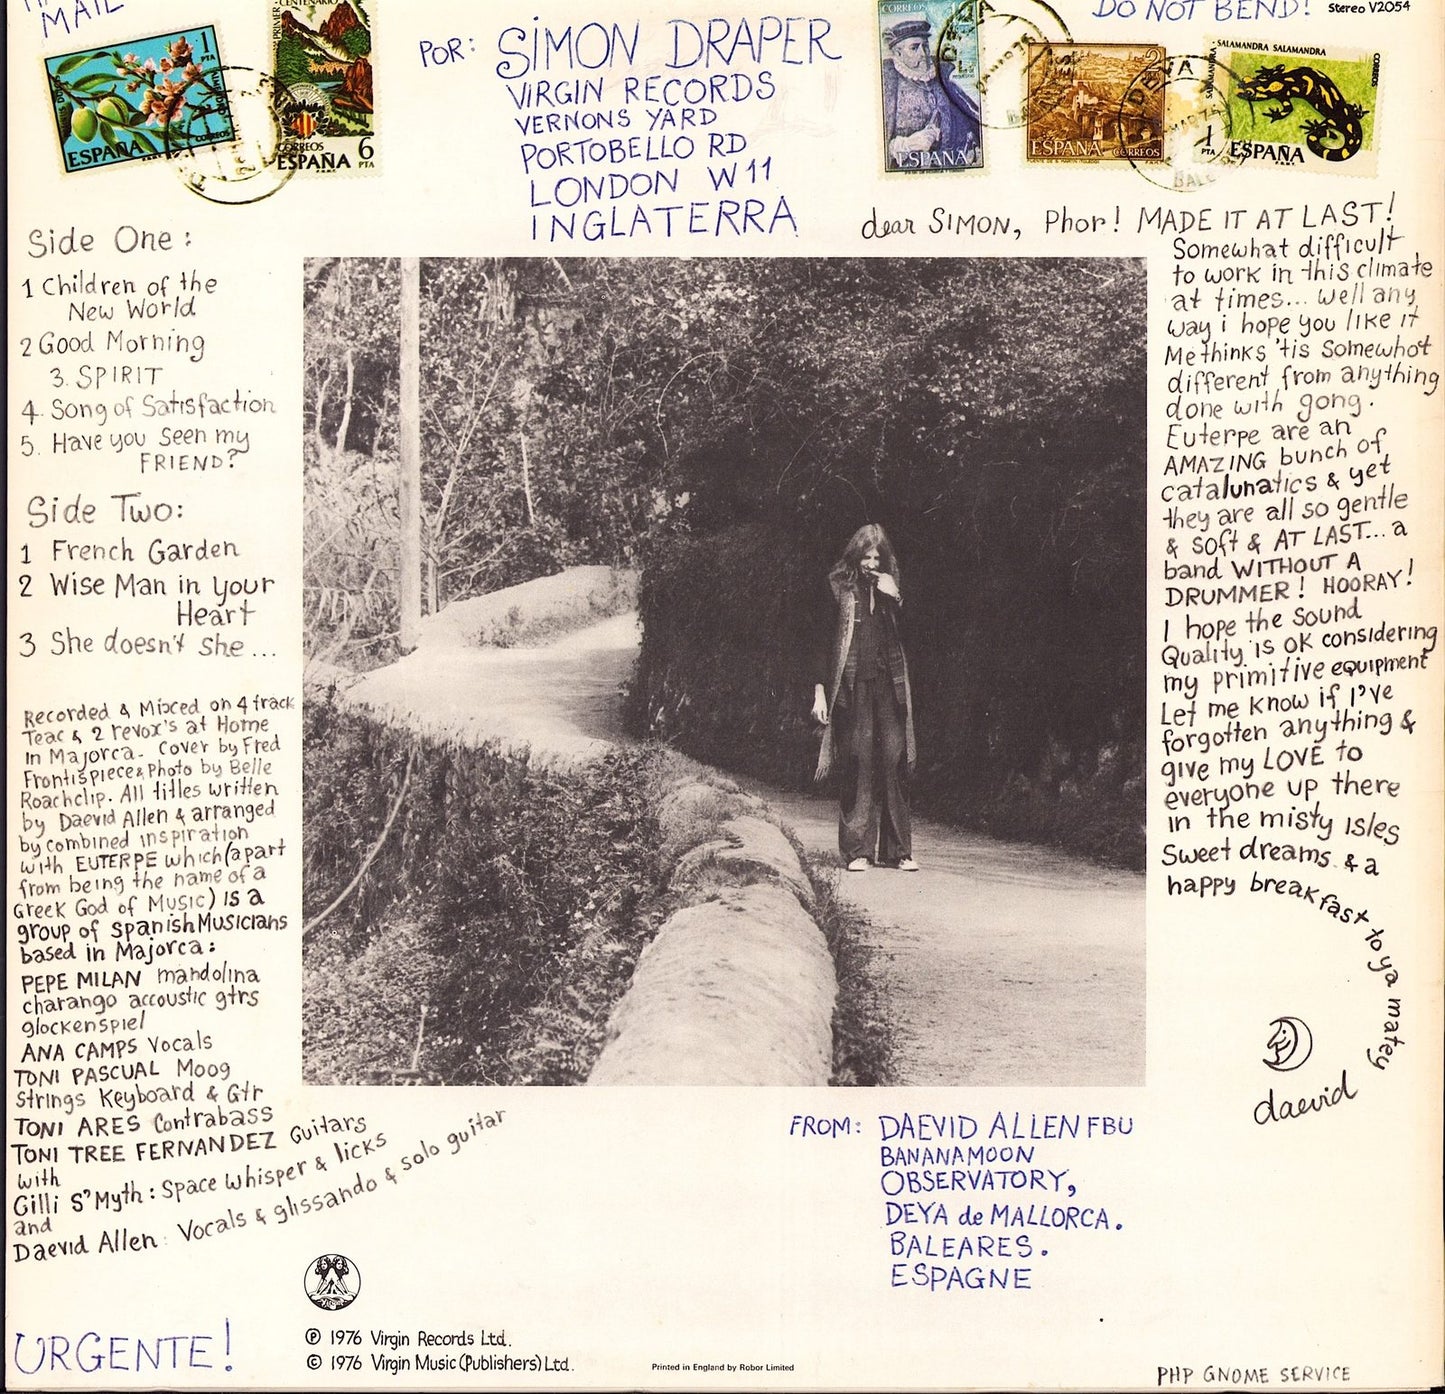 MAIL
DO NOT BEND!
Stereo V2054
1
PTA
ESPAÑA
CORREOS
CENTENARIO
CORREOS
ESPAÑA 6
PTA
POR: SIMON DRAPER
VIRGIN RECORDS
VERNONS YARD
PORTOBELLO RD
LONDON W11
INGLATERRA
CORREOS
ESPAÑA
2
PTA
ESPAÑA
CORREOS
DEYA
SALAMANDRA SALAMANDRA
CORREOS
1
PTA
ESPAÑA
Side One:
1 Children of the
New World
2 Good Morning
3. SPIRIT
4. Song of Satisfaction
5. Have you seen my
FRIEND?
Side Two:
1 French Garden
2 Wise Man in your
Heart
3 She doesn't she...
Recorded & Mixed on 4 track
Teac & 2 revox's at Home
in Majorca. Cover by Fred
Frontispiece & Photo by Belle
Roachclip. All titles written
by Daevid Allen & arranged
by combined inspiration
with EUTERPE which (apart
from being the name of a
Greek God of Music) is a
group of spanish Musicians
based in Majorca:
PEPE MILAN mandolina
charango accoustic gtrs
glockenspiel
ANA CAMPS Vocals
TONI PASCUAL Moog
Strings Keyboard & Gtr
TONI ARES Contrabass
TONI TREE FERNANDEZ Guitars
with
Gilli S'Myth: Space Whisper & licks
and
Daevid Allen: Vocals & glissando & solo guitar
dear SIMON, Phor! MADE IT AT LAST!
Somewhat difficult
to work in this climate
at times... well any
way i hope you like it
Me thinks 'tis Somewhot
different from anything
done with gong.
Euterpe are an
AMAZING bunch of
catalunatics & yet
they are all so gentle
& soft & AT LAST... a
band WITHOUT A
DRUMMER! HOORAY!
I hope the sound
Quality is ok considering
my primitive equipment
Let me know if I've
forgotten anything &
give my LOVE to
everyone up there
in the misty isles
Sweet dreams & a
happy breakfast to ya matey
daevid
FROM: DAEVID ALLEN FBU
BANANAMOON
OBSERVATORY,
DEYA de MALLORCA.
BALEARES.
ESPAGNE
URGENTE!
℗ 1976 Virgin Records Ltd.
© 1976 Virgin Music (Publishers) Ltd.
Printed in England by Robor Limited
PHP GNOME SERVICE